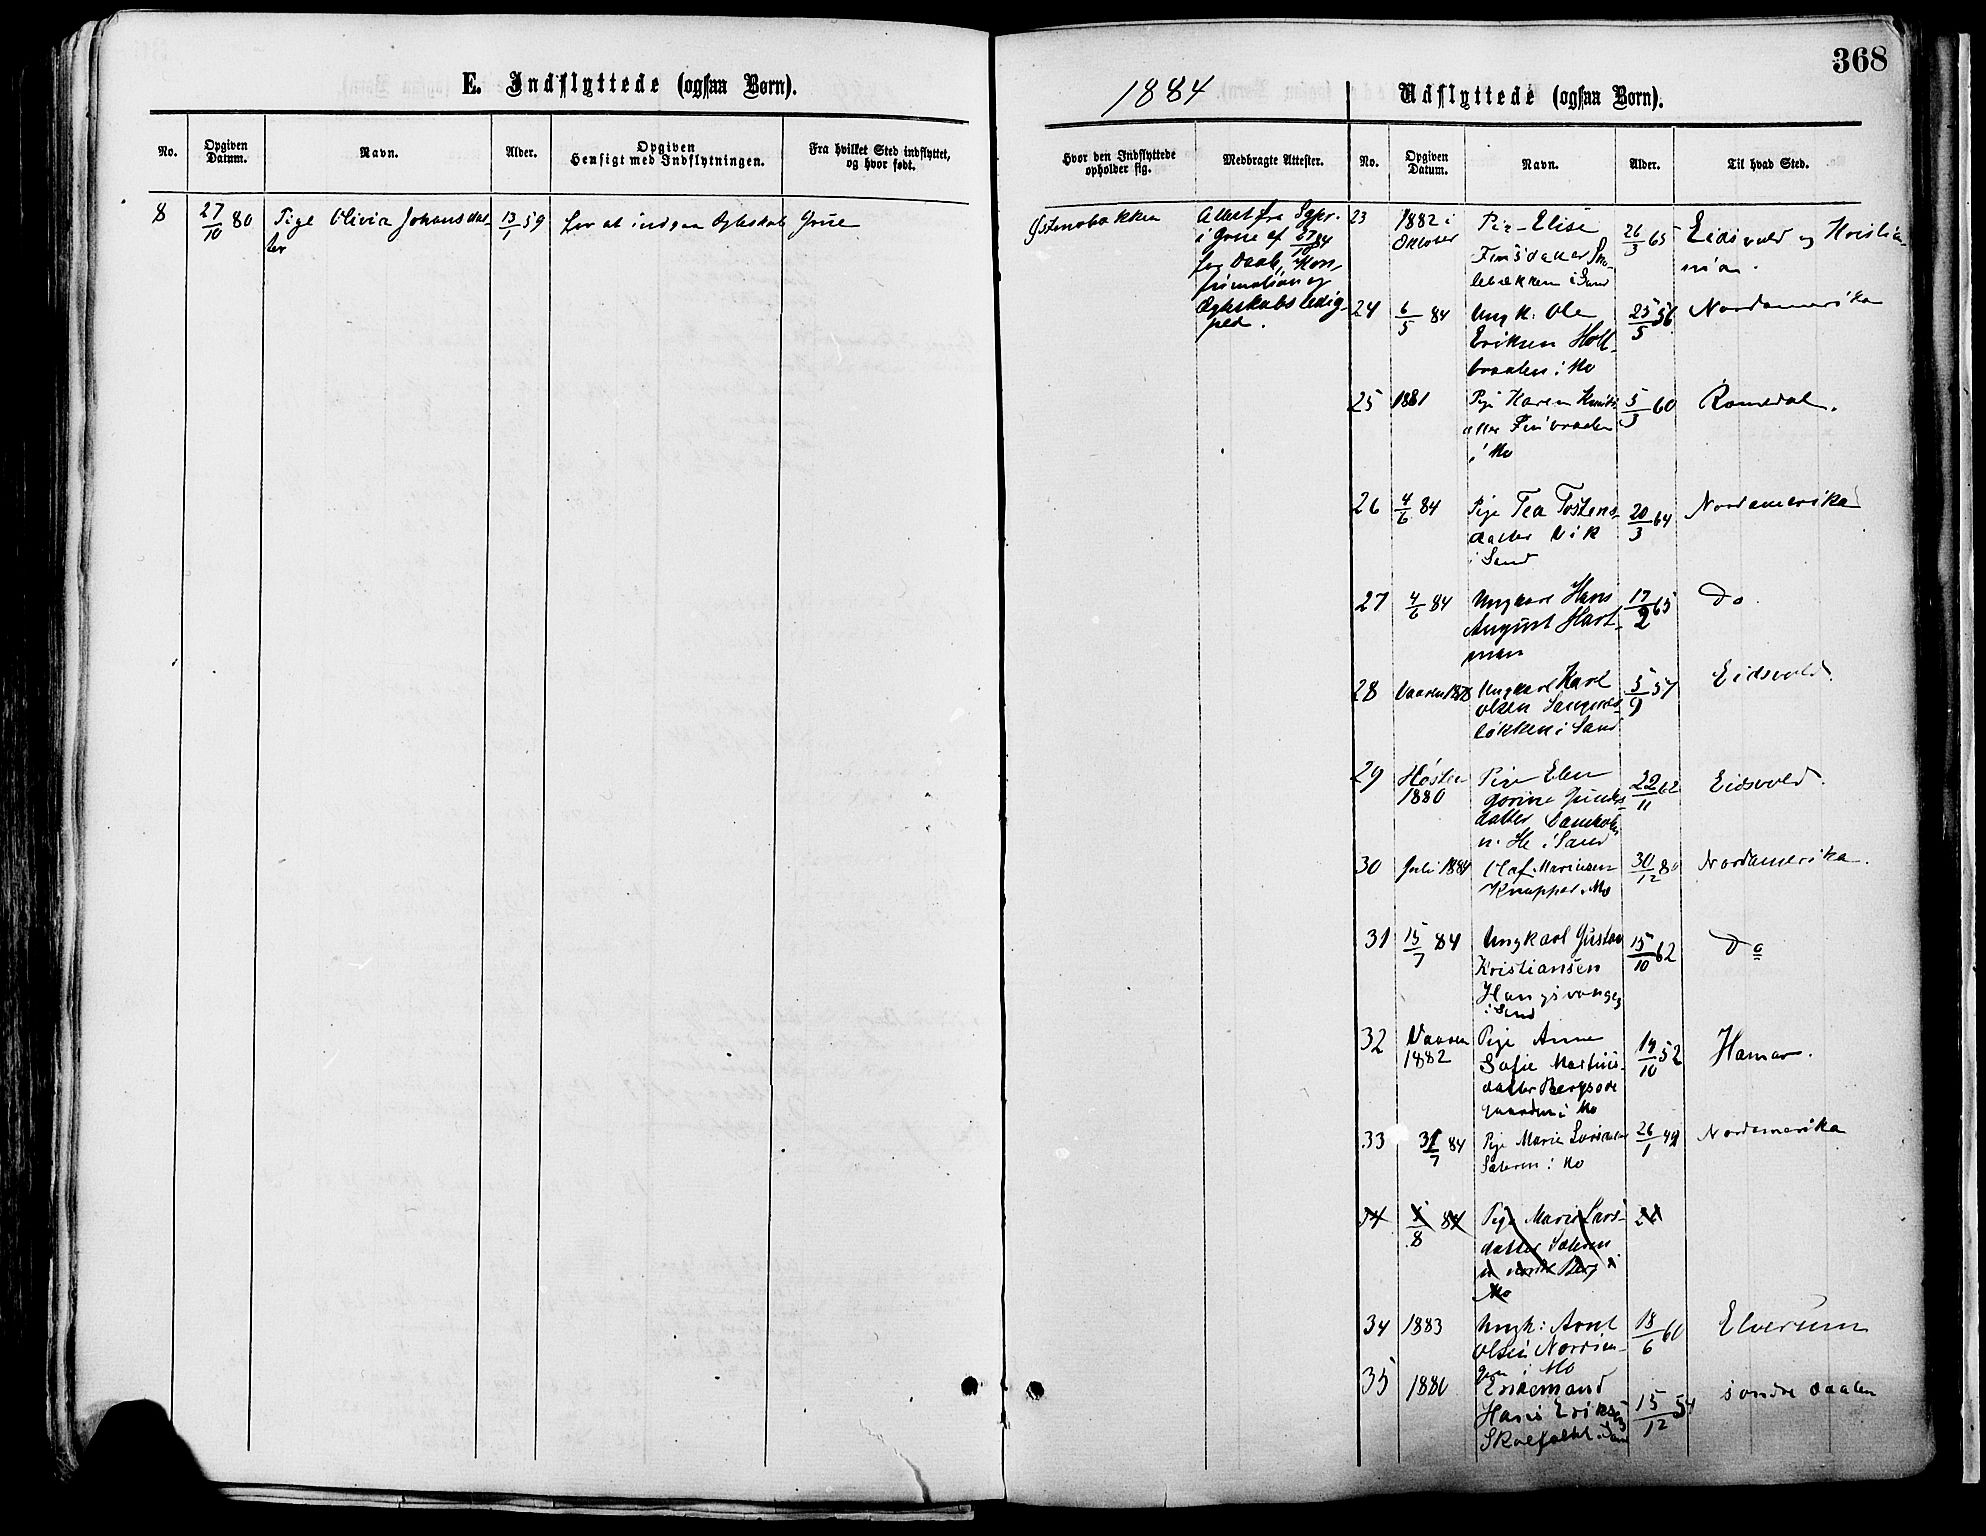 368
E. Indflyttede (ogsaa Børn).
1884
Udflyttede (ogsaa Børn).
No.
Opgiven
Datum.
Navn.
Alder.
Opgiven
Hensigt med Indflytningen.
Fra hvilket Sted indflyttet,
og hvor født.
Hvor den Indflyttede
opholder sig.
Medbragte Attester.
No.
Opgiven
Datum.
Navn.
Alder.
Til hvad Sted.
8 27/10 80 Pige Olivia Johansdat- 13/1 59 for at indgaa Ægteskab Grue
ter
Østenobakken
Attest fra Sgpr.
i Grue af 27/10 84
for Daab, Kon-
firmation og
Ægteskabsledig-
hed.
23 1882 i Pie Elise 26/3 65 Eidsvold og Kristia-
Oktober
nia.
i Sand
24 6/5 84 Ungk: Ole 25/5 56 Nordamerika
Eriksen Holt-
braaten i Mo
25 1881 Pige Karen Knuts- 5/3 60 Romedal.
datter Finbraaten
i Mo
26 4/6 84 Pige Tea Tostens- 20/3 64 Nordamerika
datter Vik
i Sand
27 4/6 84 Ungkarl Hans 17/2 65 Do.
August Hart-
man
28 Vaaren 1878 Ungkarl Karl 5/9 57 Eidsvold.
Olsen Sangnes-
løkken i Sand
29 Høsten Pige Elen 22/11 62 Eidsvold.
1880
datter
i Sand
30 Juli 1884 Olaf Mariusen 30/12 80 Nordamerika.
Knapper. Mo
31 15/7 84 Ungkarl Gustav 15/10 62 Do
Kristiansen
i Sand
32 Vaaren Pige Anne 19/10 52 Hamar.
1882 Sofie Martins-
datter
i Mo
33 31/7 84 Pige Marie Larsdatter 26/1 49 Nordamerika
Sæteren i Mo
34 1/8 84 Pige Marie Lars-
datter Sæteren
u. nordre Berg i
Mo
34 1883 Ungk: Arnt 18/6 60 Elverum
Olsen Nordin-
gen i Mo
35 1880 Enkemand 15/12 54 søndre Odalen
Hans Eriksen
Sand